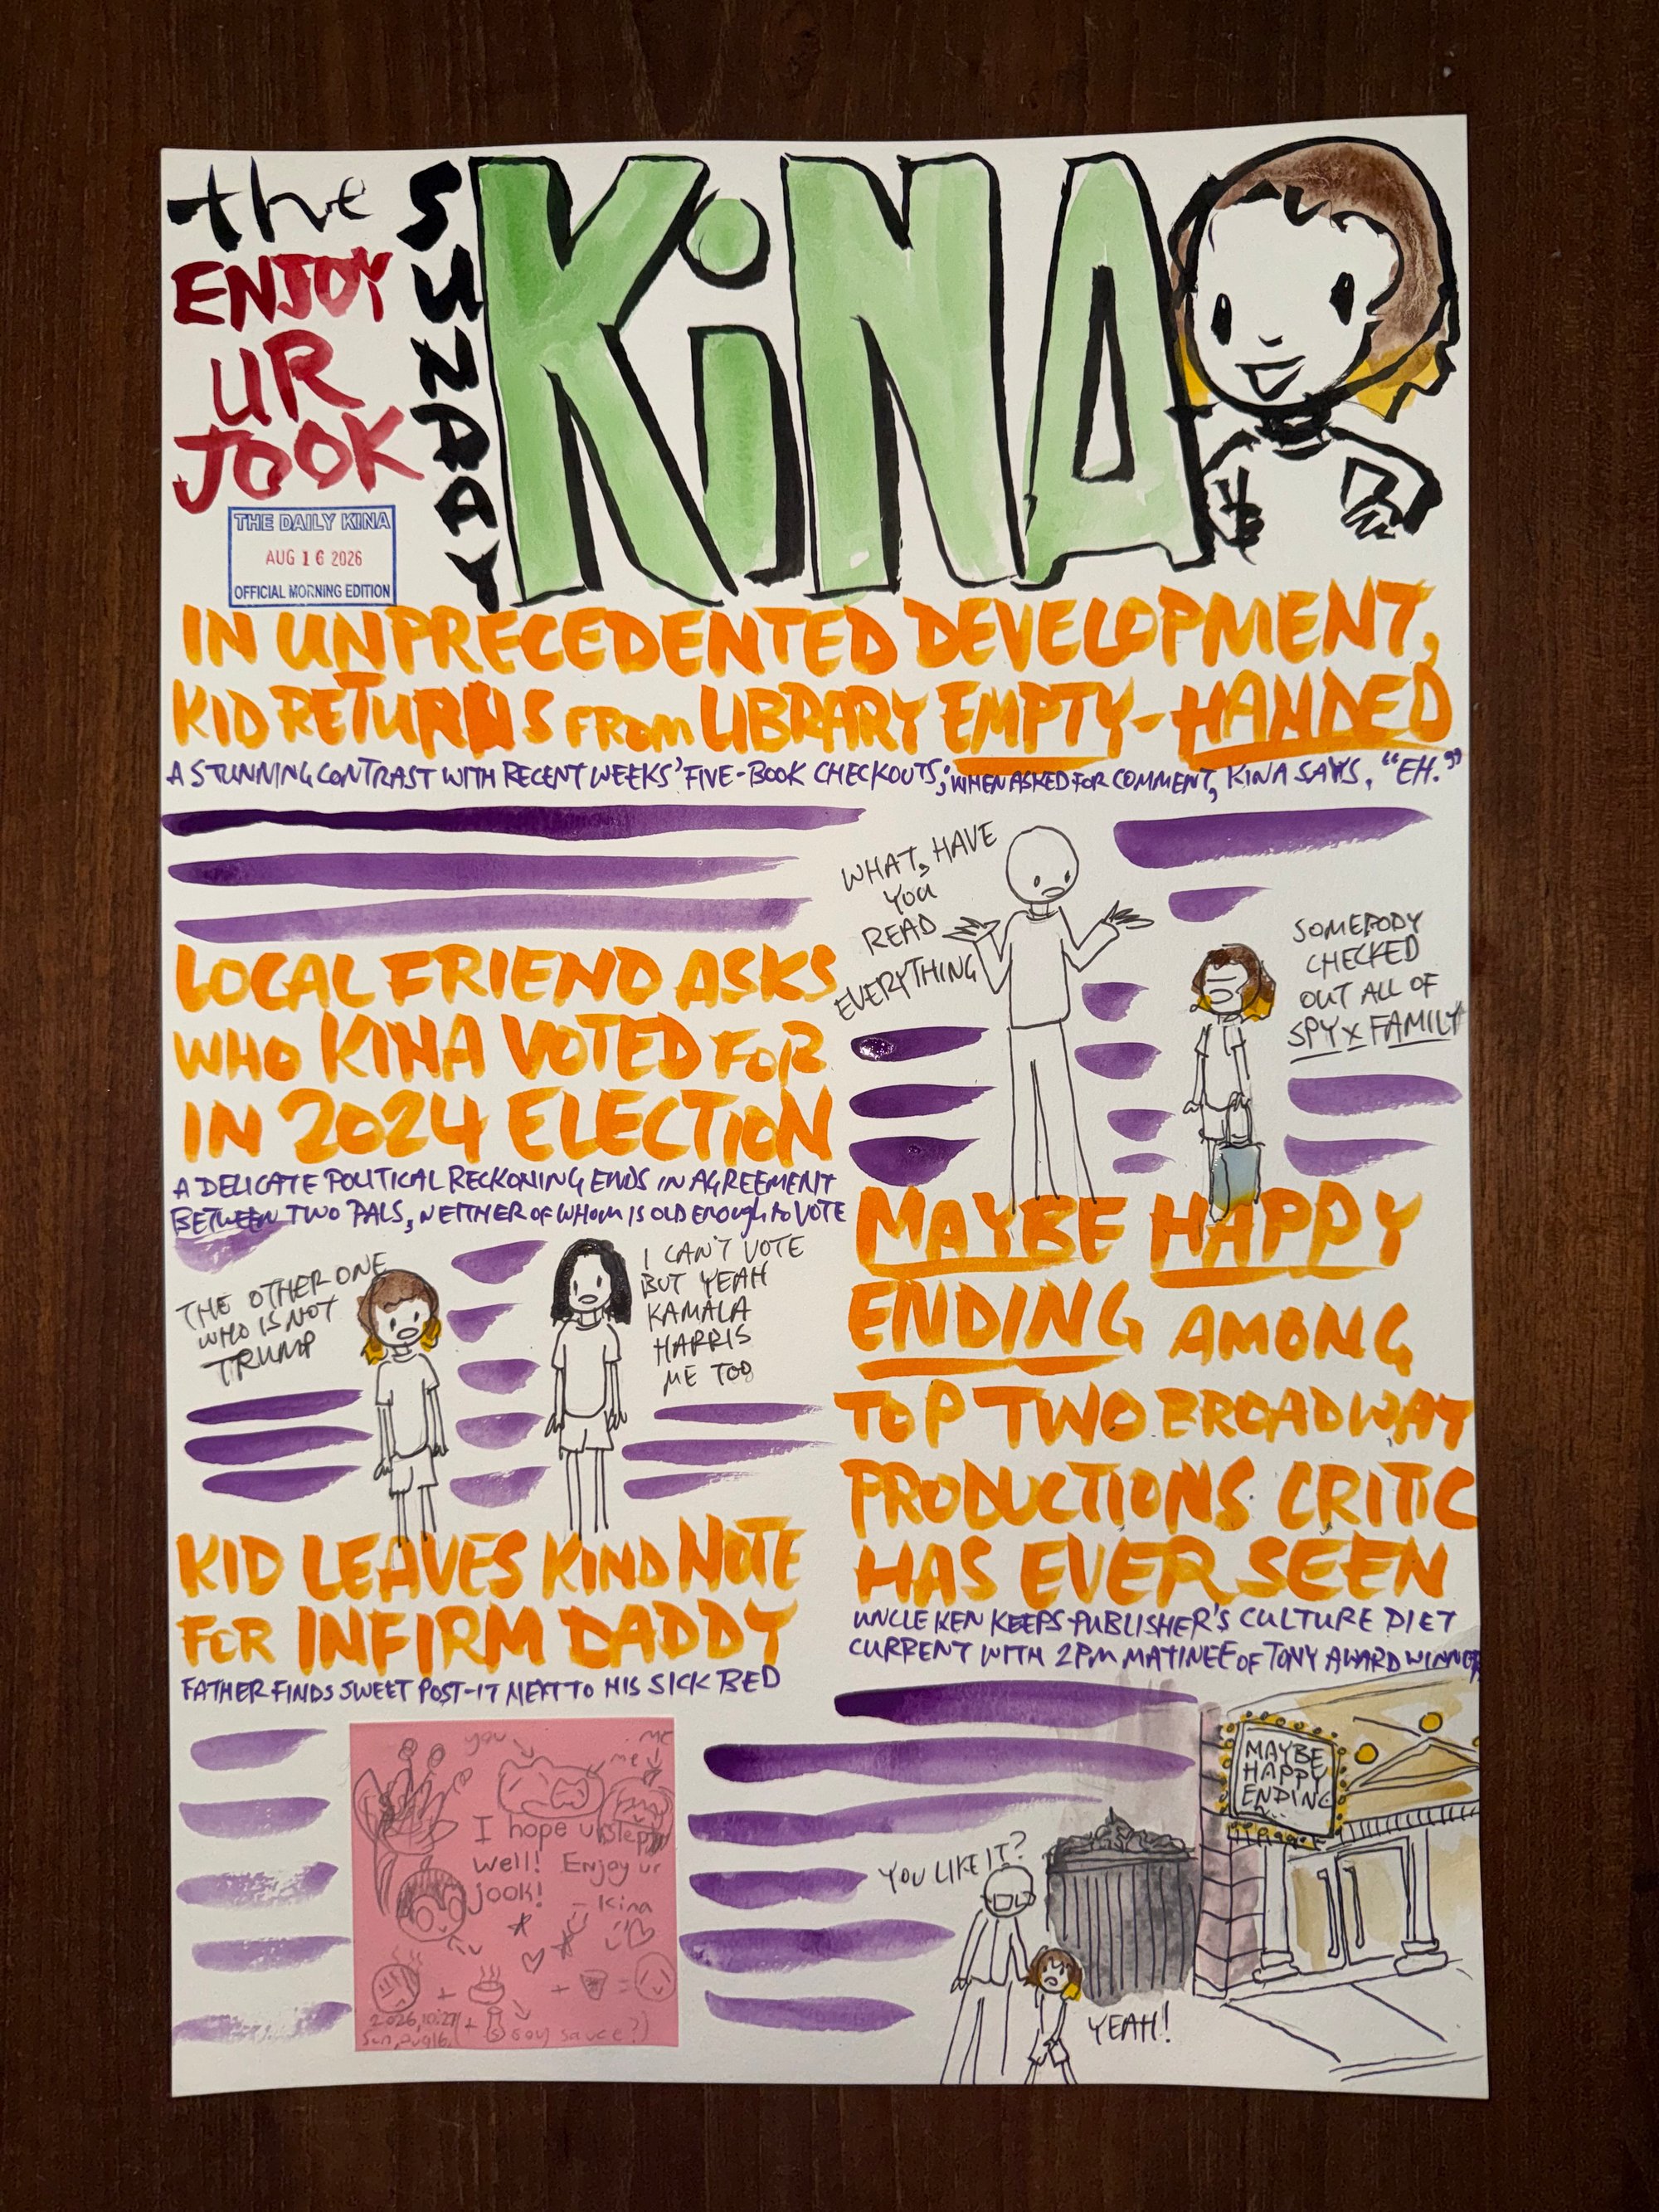 the
ENJOY
UR
JOOK
SUNDAY
KiNA
THE DAILY KINA
AUG 16 2026
OFFICIAL MORNING EDITION
IN UNPRECEDENTED DEVELOPMENT,
KID RETURNS FROM LIBRARY EMPTY-HANDED
A STUNNING CONTRAST WITH RECENT WEEKS' FIVE-BOOK CHECKOUTS; WHEN ASKED FOR COMMENT, KINA SAYS, "EH."
WHAT, HAVE
YOU
READ
EVERYTHING
SOMEBODY
CHECKED
OUT ALL OF
SPY x FAMILY
LOCAL FRIEND ASKS
WHO KINA VOTED FOR
IN 2024 ELECTION
A DELICATE POLITICAL RECKONING ENDS IN AGREEMENT
BETWEEN TWO PALS, NEITHER OF WHOM IS OLD ENOUGH to VOTE
THE OTHER ONE
WHO IS NOT
TRUMP
I CAN'T VOTE
BUT YEAH
KAMALA
HARRIS
ME TOO
MAYBE HAPPY
ENDING AMONG
TOP TWO BROADWAY
PRODUCTIONS CRITIC
HAS EVER SEEN
UNCLE KEN KEEPS PUBLISHER'S CULTURE DIET
CURRENT WITH 2PM MATINEE OF TONY AWARD WINNER
MAYBE
HAPPY
ENDING
YOU LIKE IT?
YEAH!
KID LEAVES KIND NOTE
FOR INFIRM DADDY
FATHER FINDS SWEET POST-IT NEXT TO HIS SICK BED
you
me
me
I hope u slept
well! Enjoy ur
jook!
- Kina
+
+ =
2026, 10:27
Sun, Aug 16,
(+ soy sauce?)